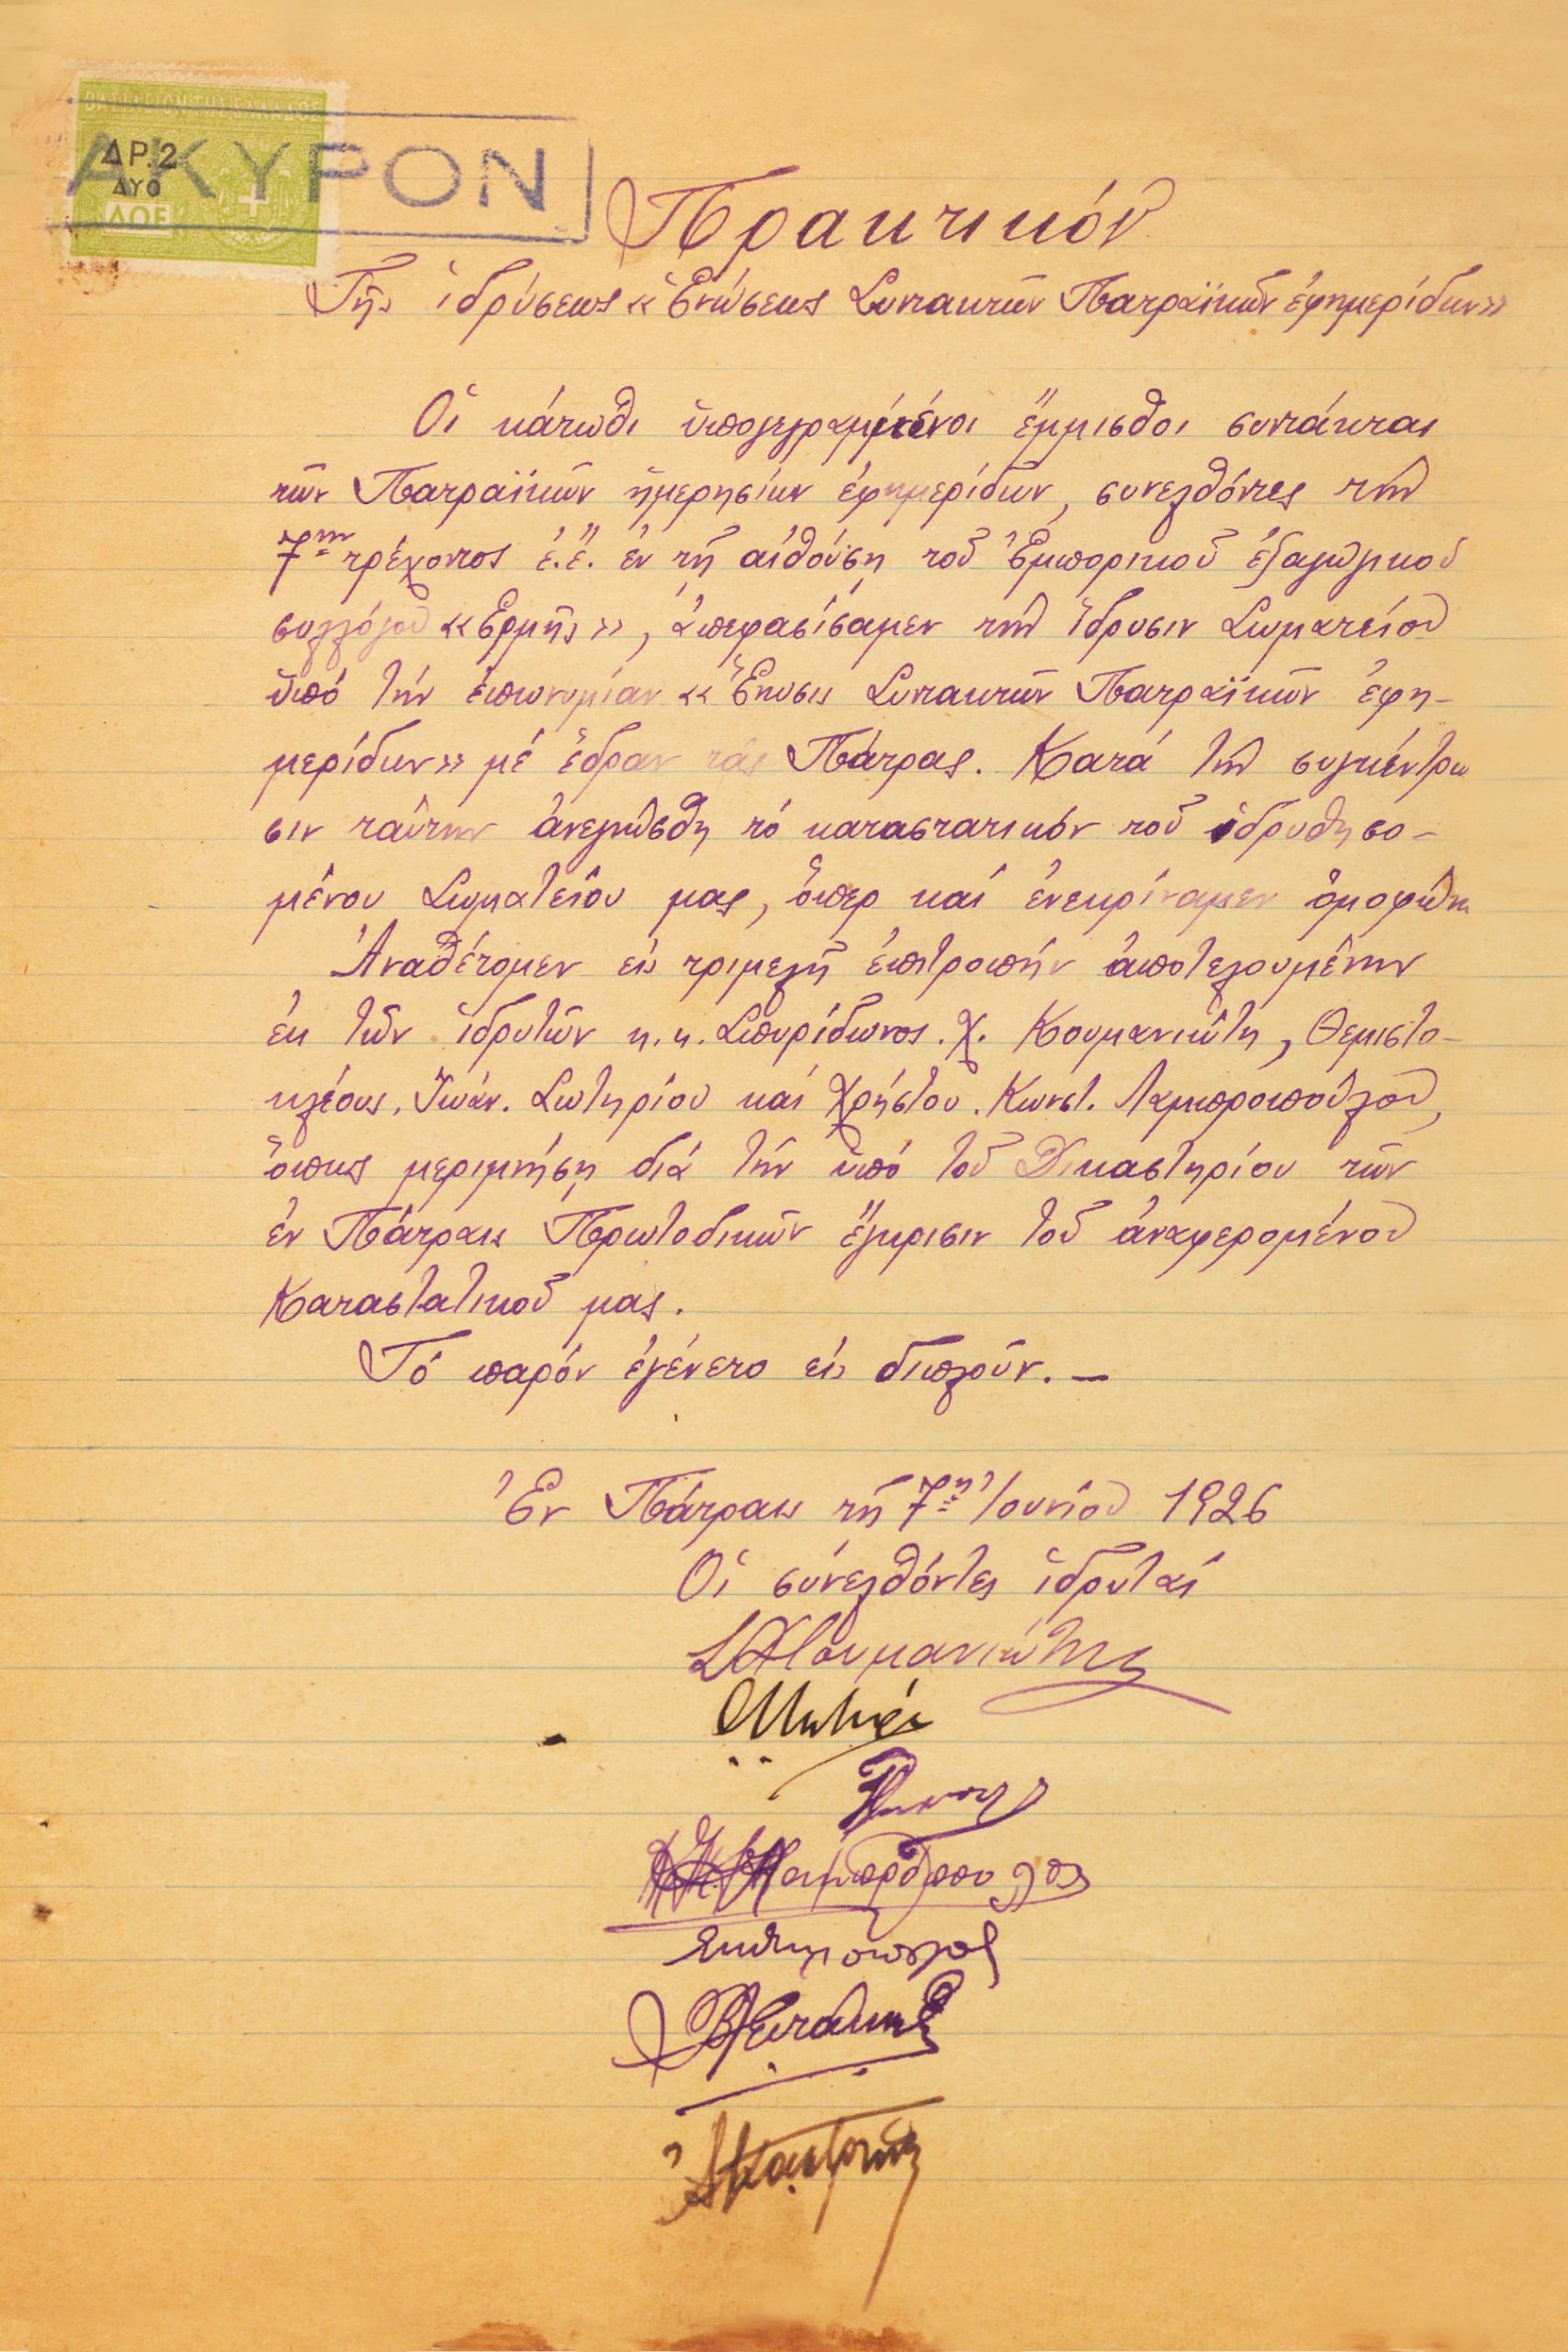 ΒΑΣΙΛΕΙΟΝ ΤΗΣ ΕΛΛΑΔΟΣ
ΔΡ.2
ΔΥΟ
ΔΟΕ
ΑΚΥΡΟΝ
Πρακτικόν
Τῆς ἱδρύσεως «Ἑνώσεως Συντακτῶν Πατραϊκῶν ἐφημερίδων»
Οἱ κάτωθι ὑπογεγραμμένοι ἔμμισθοι συντάκται
τῶν Πατραϊκῶν ἡμερησίων ἐφημερίδων, συνελθόντες τήν
7ην τρέχοντος ἔ.ἔ. ἐν τῇ αἰθούσῃ τοῦ Ἐμπορικοῦ ἐξαγωγικοῦ
συλλόγου «Ερμῆς», ἀπεφασίσαμεν τήν ἵδρυσιν Σωματείου
ὑπό τήν ἐπωνυμίαν «Ἕνωσις Συντακτῶν Πατραϊκῶν ἐφη-
μερίδων» μέ ἕδραν τάς Πάτρας. Κατά τήν συγκέντρω
σιν ταύτην ἀνεγνώσθη τό καταστατικόν τοῦ ἱδρυθησο-
μένου Σωματείου μας, ὅπερ καί ἐνεκρίναμεν ὁμοφώνως
Ἀναθέτομεν εἰς τριμελῆ ἐπιτροπήν ἀποτελουμένην
ἐκ τῶν ἱδρυτῶν κ.κ. Σπυρίδωνος. Χ. Κουμανιώτη, Θεμιστο-
κλέους. Ἰωάν. Σωτηρίου καί Χρήστου. Κωνστ. Λαμπροπούλου,
ὅπως μεριμνήσῃ διά τήν ὑπό τοῦ Δικαστηρίου τῶν
ἐν Πάτραις Πρωτοδικῶν ἔγκρισιν τοῦ ἀναφερομένου
Καταστατικοῦ μας.
Τό παρόν ἐγένετο εἰς διπλοῦν. —
Ἐν Πάτραις τῇ 7ῃ Ἰουνίου 1926
Οἱ συνελθόντες ἱδρυταί
ΣΧΚουμανιώτης